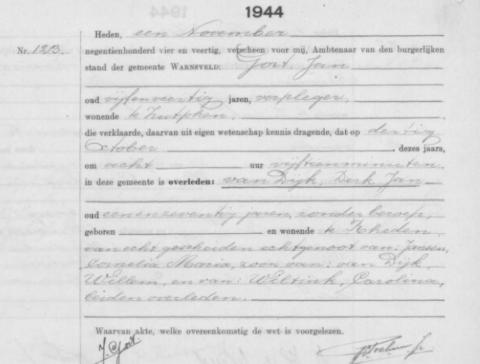 1944
Heden, een November
Nr. 123. negentienhonderd vier en veertig, verscheen voor mij, Ambtenaar van den burgerlijken
stand der gemeente WARNSVELD: Jan
oud vijfenveertig jaren, verpleger,
wonende te Zutphen
die verklaarde, daarvan uit eigen wetenschap kennis dragende, dat op dertig
October, dezes jaars,
om acht uur vijftien minuten
in deze gemeente is overleden: van Dijk, Derk Jan
oud eenenzeventig jaren, zonder beroep,
geboren en wonende te Rheden,
van echt gescheiden echtgenoot van: Jansen,
Cornelia Maria, zoon van: van Dijk,
Willem, en van: Weltink, Carolina,
beiden overleden.
Waarvan akte, welke overeenkomstig de wet is voorgelezen.